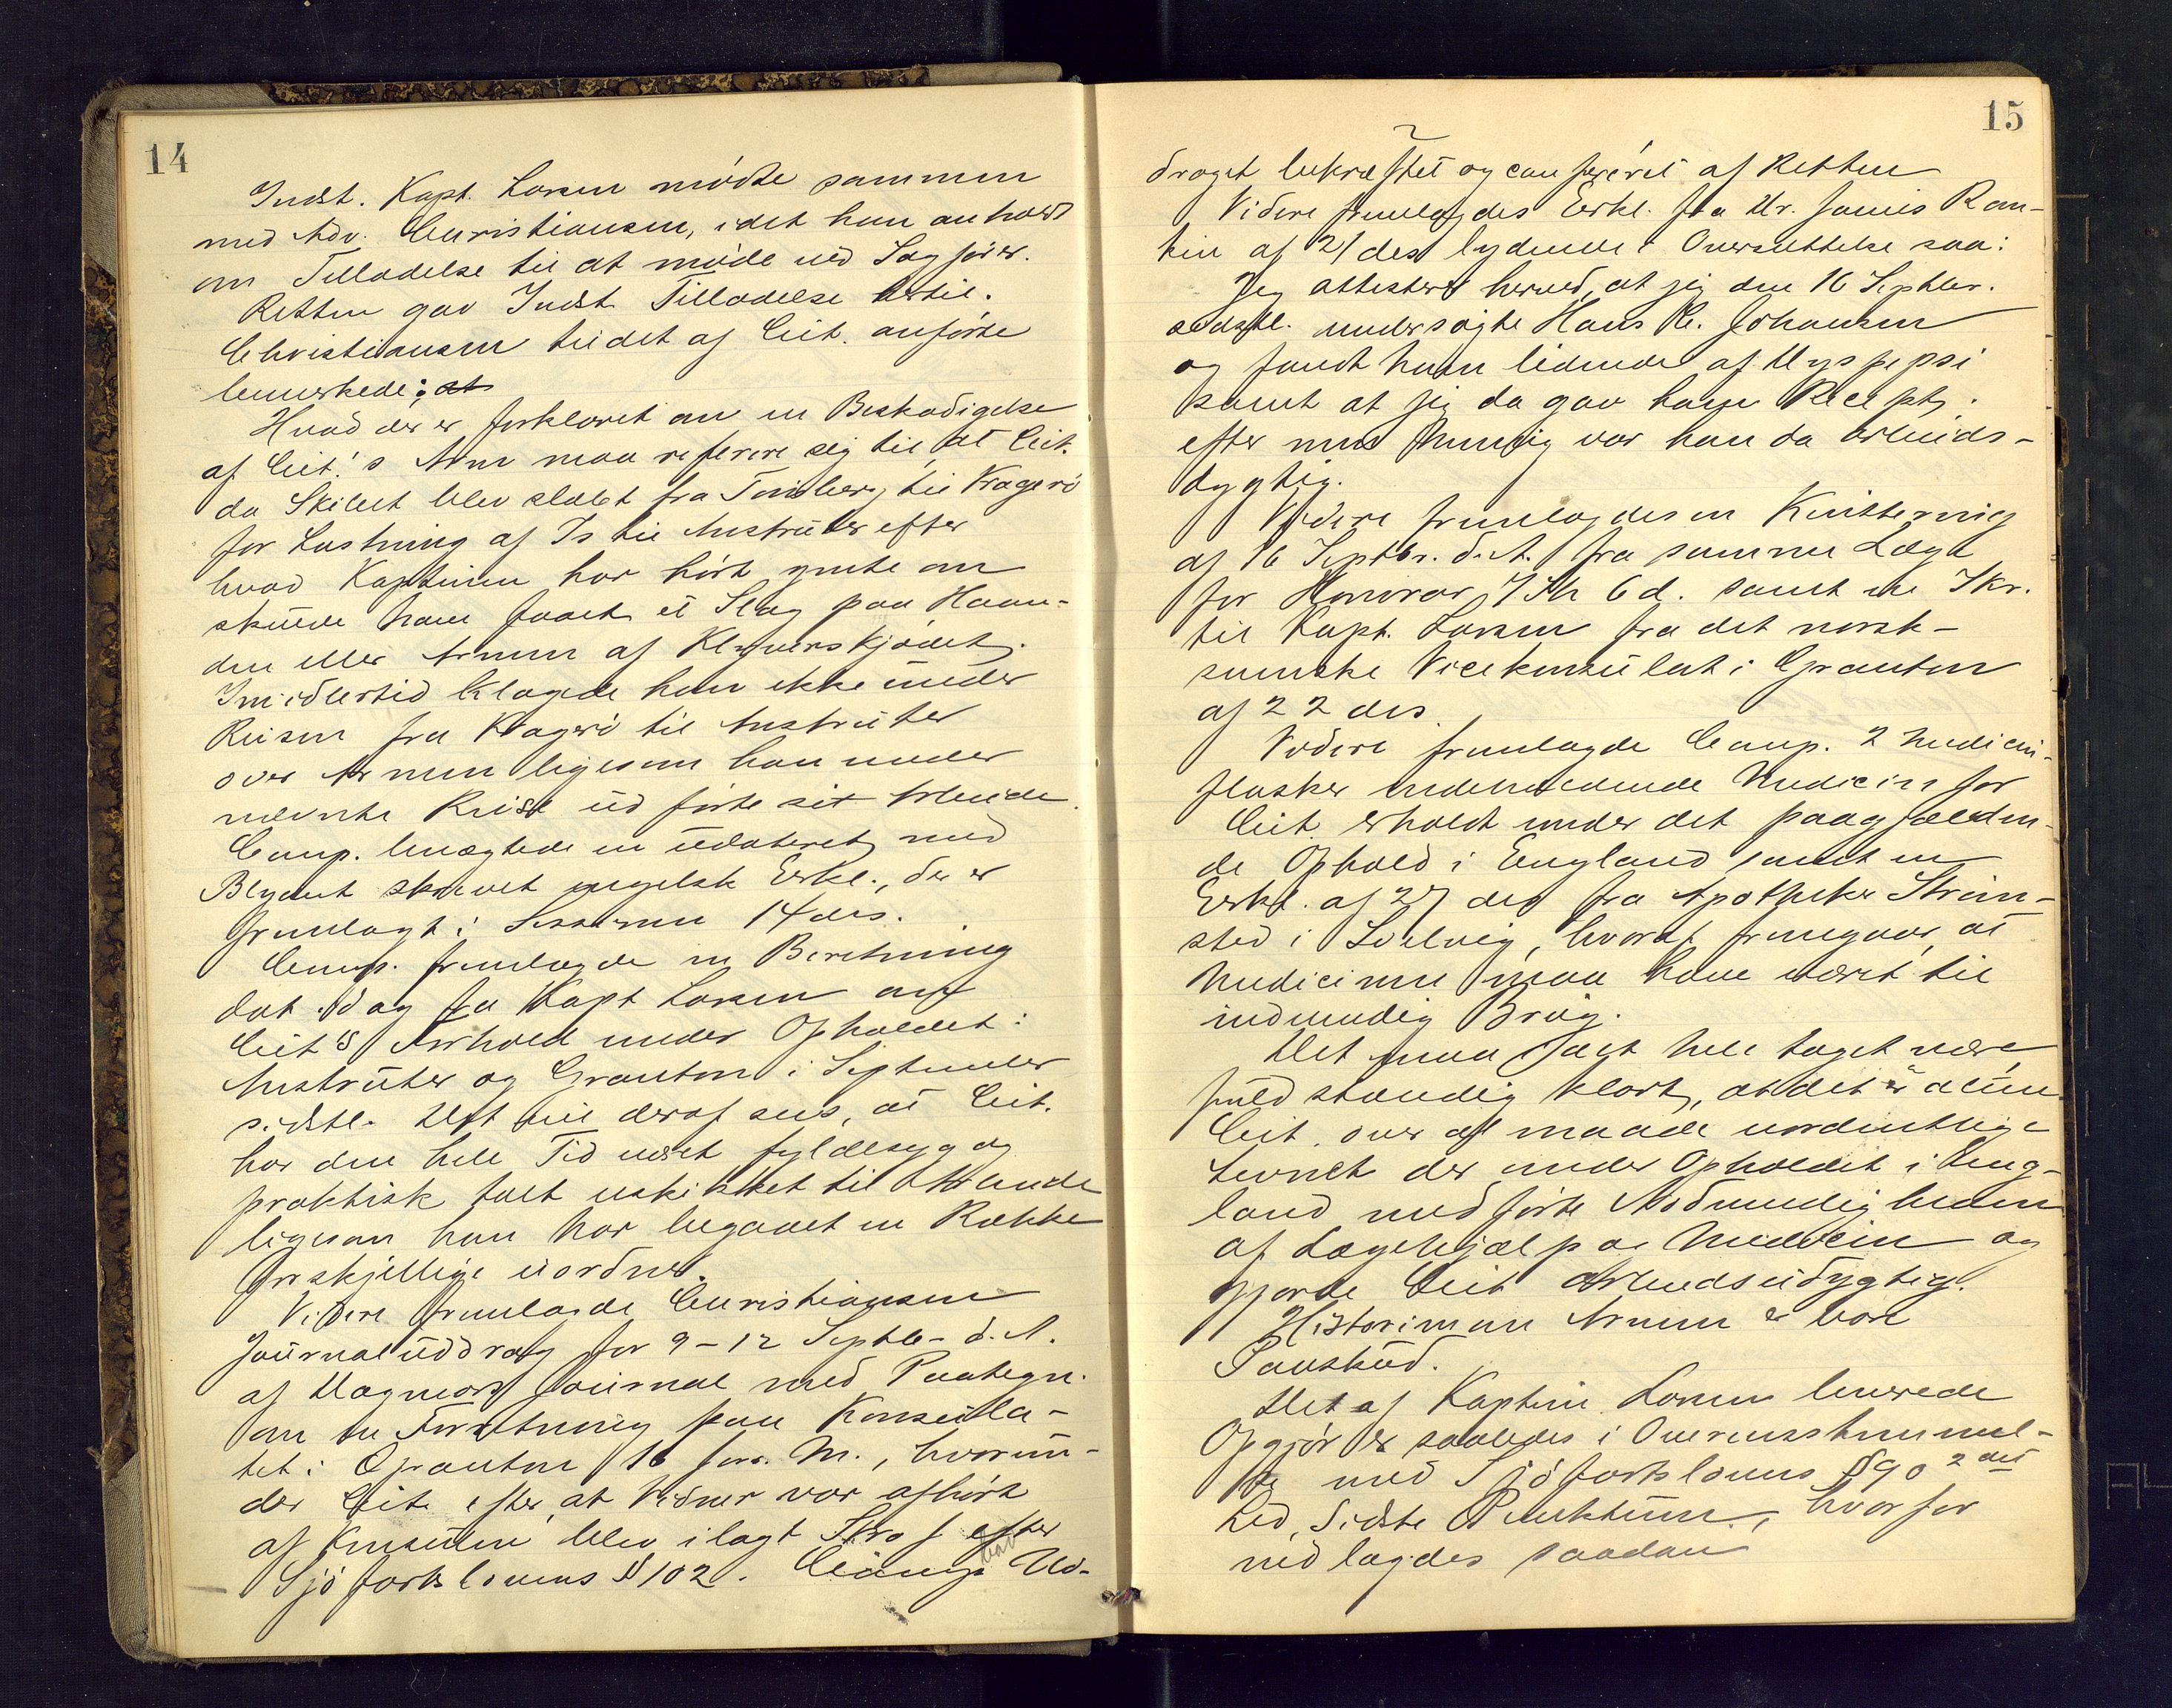 14
Indst. Kapt. Larsen mødte sammen
med Adv. Christiansen, idet han anholdt
om Tilladelse til at møde ved Sagfører.
Retten gav Indst. Tilladelse hertil.
Christiansen til det af Cit. anførte
bemerkede: at
Hvad der er forklaret om en Beskadigelse
af Cit.'s Arm maa referere sig til, at Cit.
da Skibet blev slæbt fra Tønsberg til Kragerø
for Lastning af Is til Anstruter efter
hvad Kaptainen har hørt ymte om
skulde have faaet et Slag paa Haan-
den eller Armen af Klyverskjødet.
Imidlertid klagede han ikke under
Reisen fra Kragerø til Anstruter
over Armen ligesom han under
nævnte Reise udførte sit Arbeide.
Comp. benægtede en udateret med
Blyant skrevet engelsk Erkl., der er
fremlagt i Sessionen 14 ds.
Comp. fremlagde en Beretning
dat. Idag fra Kapt Larsen om
Cit's Forhold under Opholdet i
Anstruter og Granton i September
sidstl. Det vil deraf sees, at Cit.
har den hele Tid været fyldesyg og
praktisk talt uskikket til Arbeide
ligesom han har begaaet en Række
forskjellige uordner.
Videre fremlagde Christiansen
Journaluddrag for 9-12 Septb. d. A.
af Dagmars Journal med Paategn.
om en Forretning paa Konsula-
tet i Granton 16 forr. M., hvorun-
der Cit. efter at Vidner var afhørt
af Konsulen blev ilagt Straf efter
Sjøfartslovens § 102. Comp. bad Ud-
15
draget bekræftet og confereret af Retten
Videre fremlagdes Erkl. fra Dr. James Ran-
kin af 21 des lydende i Oversættelse saa:
Jeg attesterer herved, at jeg den 16 Septbr.
sidstl. undersøgte Hans Chr. Johansen
og fandt ham lidende af Dyspepsi
samt at jeg da gav ham Recept;
efter min Mening var han da arbeids-
dygtig.
Videre fremlagdes en Kvittering
af 16 Septbr. d. A. fra samme Læge
for Honorar 7 Sh 6 d. samt en Skr.
til Kapt. Larsen fra det norsk-
svenske Vicekonsulat i Granton
af 22 des.
Videre fremlagde Comp. 2 Medicin-
flasker indeholdende Medicin for
Cit. erholdt under det paagjælden-
de Ophold i England samt en
Erkl. af 27 des fra Apotheker Strøm-
sted i Svelvig, hvoraf fremgaar, at
Medicinen maa have været til
indvendig Brug.
Det maa saat hele taget være
fuldstændig klart, at det er alene
Cit. over al maade uordentlige
Levnet der under Opholdet i Eng-
land medførte Nødvendigheden
af Lægehjælp og Medicin og
gjorde Cit arbeidsudygtig.
Historien om Armen er bare
Paaskud.
Det af Kaptein Larsen leverede
Opgjør er saaledes i Overensstemmel-
se med Sjøfartslovens § 90 2det
Led, Sidste Punktum, hvorfor
nedlagdes saadan